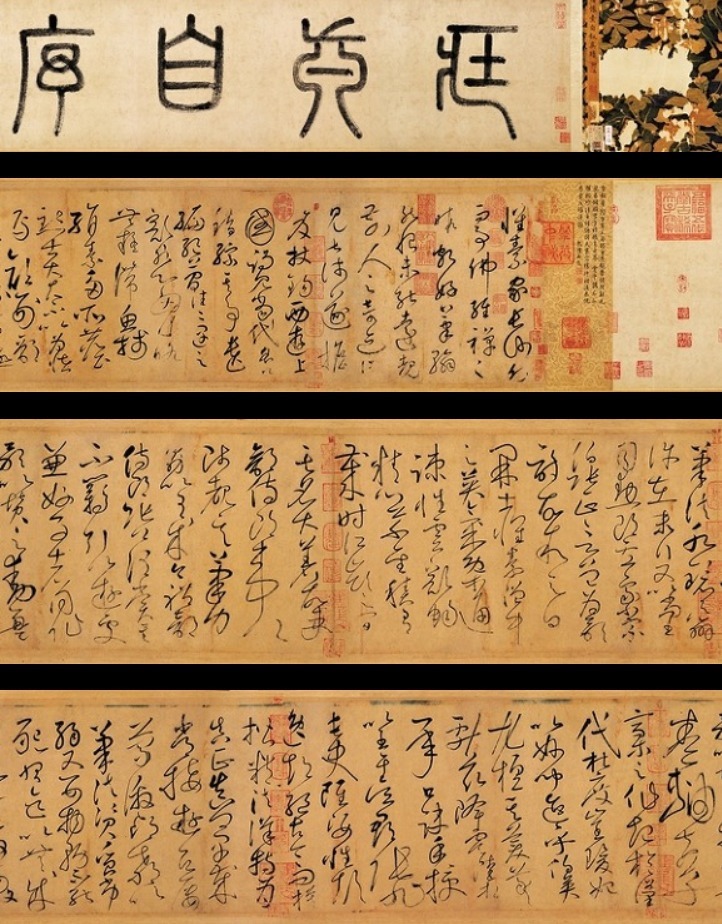 藏真自序
懷素家長沙幼而
事佛經禪之
暇頗好筆翰
然恨未能遠覩
前人之奇迹所
見甚淺遂擔
笈杖錫西遊上
國謁見當代名公
錯綜其事遺
編絕簡往往遇之
豁然心胸略
無疑滯魚牋
絹素多所塵
點士大夫不以為怪
焉顏刑部
筆法水鏡之辨
許在末行又以尚書
司勳郎盧象小宗
伯張正言曾為歌
詩故敘之曰
開士懷素僧中
之英氣概通
疎性靈豁暢
精心草聖積有
歲時江嶺之間
其名大著故吏
部侍郎韋公
陟覩其筆力
勗以有成今禮部
侍郎張公謂賞其
不羈引以遊處
兼好事者同作
歌以贊之動盈
卷軸夫草
稿之作起於漢
代杜度崔瑗始
以妙聞迨乎伯英
尤擅其美羲
獻茲降虞陸相
承口訣手授
以至于吳郡張旭
長史雖姿性顛
逸超絕古今而模
楷精法詳特為
真正真卿早歲
常接遊居屢
蒙激昂教以
筆法資質劣
弱又嬰物務不能
懇習迄以無成